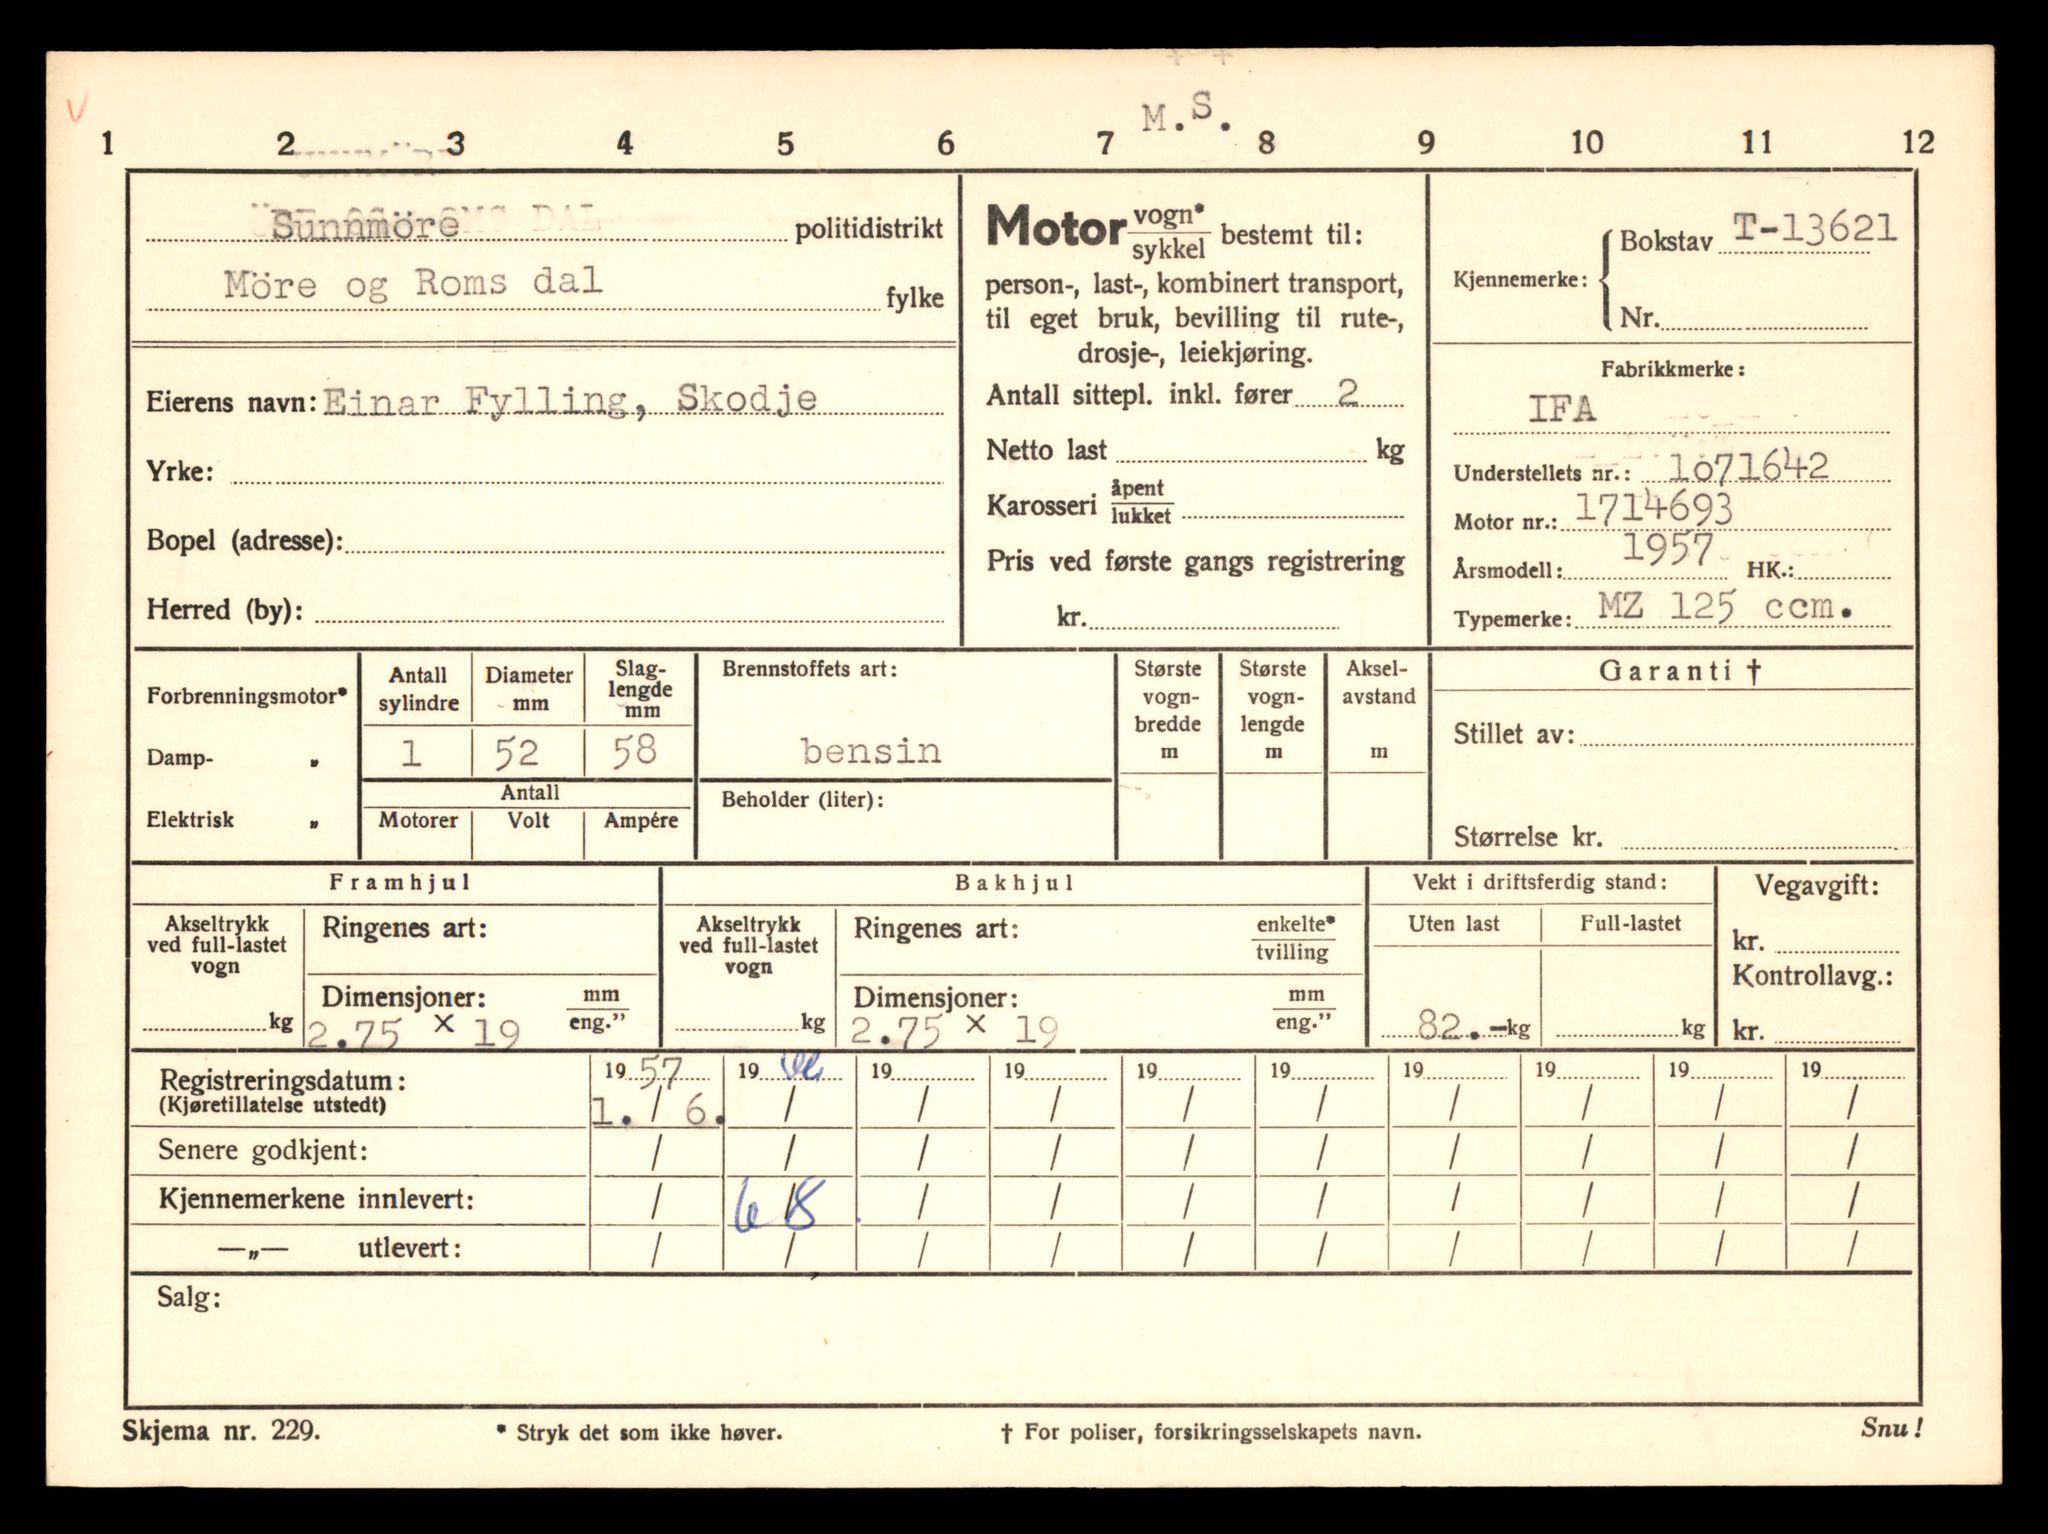 M.S.
1 2 3 4 5 6 7 8 9 10 11 12
Sunnmöre politidistrikt
Möre og Roms dal fylke
Eierens navn: Einar Fylling, Skodje
Yrke:
Bopel (adresse):
Herred (by):
Motor vogn* / sykkel bestemt til:
person-, last-, kombinert transport,
til eget bruk, bevilling til rute-,
drosje-, leiekjøring.
Antall sittepl. inkl. fører 2
Netto last kg
Karosseri åpent / lukket
Pris ved første gangs registrering
kr.
Kjennemerke: Bokstav T-13621
Nr.
Fabrikkmerke:
IFA
Understellets nr.: 1071642
Motor nr.: 1714693
Årsmodell: 1957 HK.:
Typemerke: MZ 125 ccm.
Forbrenningsmotor*
Damp- „
Elektrisk „
Antall sylindre
Diameter mm
Slag-lengde mm
1 52 58
Antall
Motorer Volt Ampére
Brennstoffets art:
bensin
Beholder (liter):
Største vogn-bredde m
Største vogn-lengde m
Aksel-avstand m
Garanti †
Stillet av:
Størrelse kr.
Framhjul
Akseltrykk ved full-lastet vogn
kg
Ringenes art:
Dimensjoner: mm / eng."
2.75 x 19
Bakhjul
Akseltrykk ved full-lastet vogn
kg
Ringenes art: enkelte* / tvilling
Dimensjoner: mm / eng."
2.75 x 19
Vekt i driftsferdig stand:
Uten last Full-lastet
82.-kg kg
Vegavgift:
kr.
Kontrollavg.:
kr.
Registreringsdatum: 19 57 19 19 19 19 19 19 19 19 19
(Kjøretillatelse utstedt) 1. / 6. / / / / / / / / /
Senere godkjent: / / / / / / / / / /
Kjennemerkene innlevert: / 6/8 / / / / / / / /
—„— utlevert: / / / / / / / / / /
Salg:
Skjema nr. 229. * Stryk det som ikke høver. † For poliser, forsikringsselskapets navn. Snu!